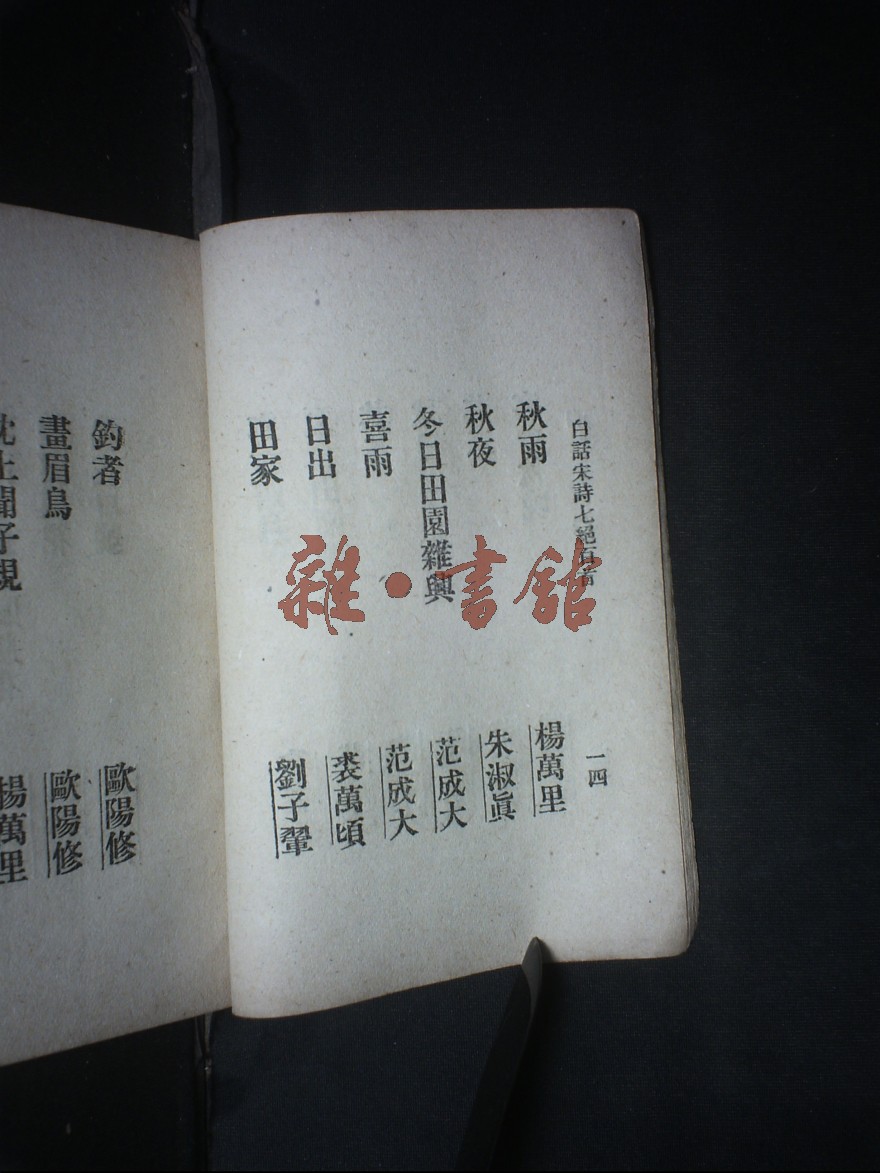 白話宋詩七絕百首
一四
秋雨
楊萬里
秋夜
朱淑眞
冬日田園雜興
范成大
喜雨
范成大
日出
裘萬頃
田家
劉子翬
釣者
歐陽修
畫眉鳥
歐陽修
枕上聞子規
楊萬里
雜·書館